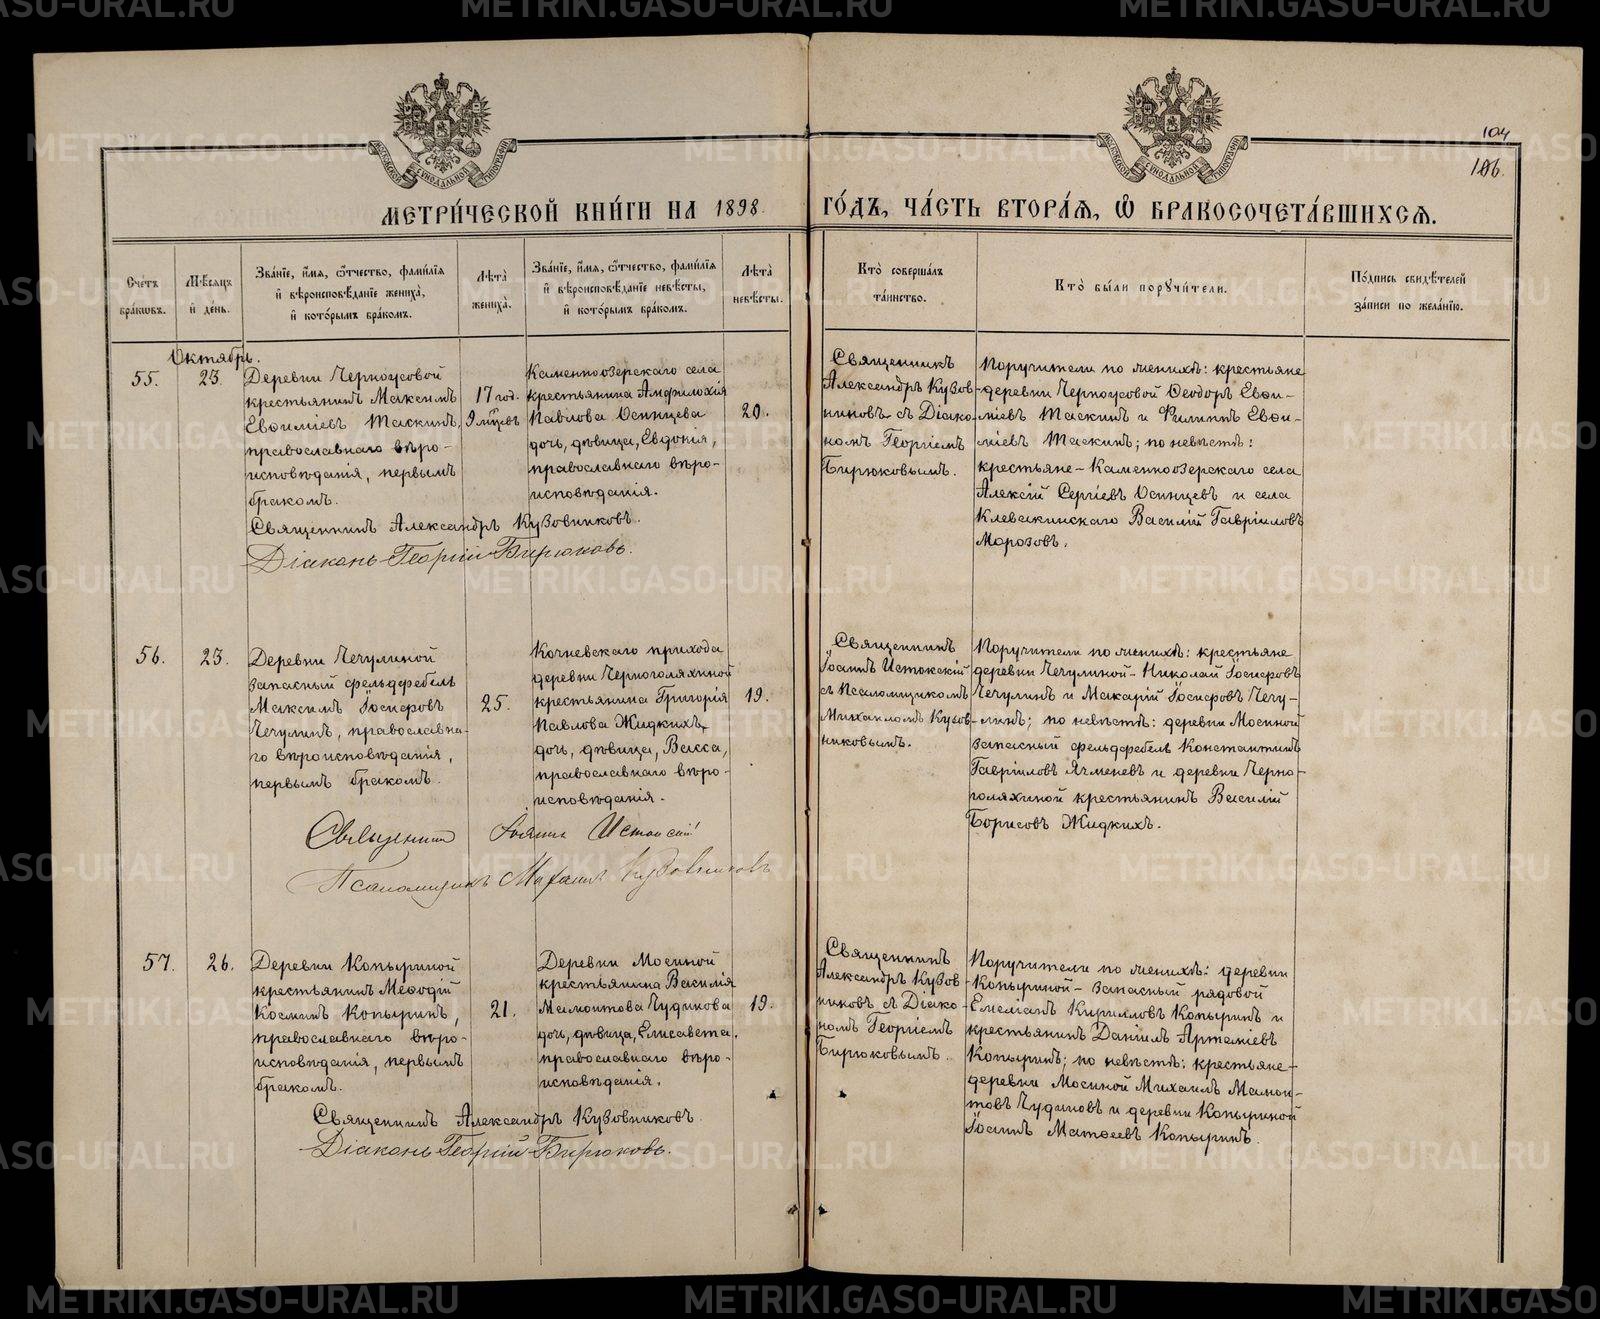 104
106.
МЕТРИ́ЧЕСКОЙ КНИ́ГИ НА 1898.
ГО́ДЪ, ЧА́СТЬ ВТОРА́Я, Ѡ҆ БРАКОСОЧЕТА́ВШИХСЯ.
Сче́тъ бра́кѡвъ.
Мѣ́сѧцъ и҆ де́нь.
Зва́нїе, и҆́мя, ѻ҆́тчество, фами́лїя
и҆ вѣроисповѣ́данїе жениха̀,
и҆ кото́рымъ бра́комъ.
Лѣта̀ жениха̀.
Зва́нїе, и҆́мя, ѻ҆́тчество, фами́лїя
и҆ вѣроисповѣ́данїе невѣ́сты,
и҆ кото́рымъ бра́комъ.
Лѣта̀ невѣ́сты.
Кто̀ соверша́лъ
та́инство.
Кто̀ бы́ли порꙋчи́тели.
По́дпись свидѣ́телей
за́писи по жела́нїю.
Октябрь.
55.
23.
Деревни Черноусовой
крестьянинъ Максимъ
Евѳиміевъ Таскинъ,
православнаго вѣро-
исповѣданія, первымъ
бракомъ.
17 год.
9 мцевъ
Каменноозерскаго села
крестьянина Амфилохія
Павлова Осинцева
дочь, дѣвица, Евдокія,
православнаго вѣро-
исповѣданія.
20.
Священникъ
Александръ Кузов-
никовъ съ Діако-
номъ Георгіемъ
Бирюковымъ.
Поручители по женихѣ: крестьяне
деревни Черноусовой Ѳеодоръ Евѳи-
міевъ Таскинъ и Филиппъ Евѳи-
міевъ Таскинъ; по невѣстѣ:
крестьяне - Каменноозерскаго села
Алексій Сергіевъ Осинцевъ и села
Клевакинскаго Василій Гавріиловъ
Морозовъ.
Священникъ Александръ Кузовниковъ.
Діаконъ Георгій Бирюковъ.
56.
23.
Деревни Чечулиной
запасный фельдфебель
Максимъ Іосифовъ
Чечулинъ, православна-
го вѣроисповѣданія,
первымъ бракомъ.
25.
Кочневскаго прихода
деревни Черноголяхиной
крестьянина Григорія
Павлова Жидкихъ,
дочь, дѣвица, Васса,
православнаго вѣро-
исповѣданія.
19.
Священникъ
Іоаннъ Истокскій
съ Псаломщикомъ
Михаиломъ Кузов-
никовымъ.
Поручители по женихѣ: крестьяне
деревни Чечулиной - Николай Іосифовъ
Чечулинъ и Макарій Іосифовъ Чечу-
линъ; по невѣстѣ: деревни Мосиной
запасный фельдфебель Константинъ
Гавріиловъ Ячменевъ и деревни Черно-
голяхиной крестьянинъ Василій
Борисовъ Жидкихъ.
Священникъ Іоаннъ Истокскій
Псаломщикъ Михаилъ Кузовниковъ
57.
26.
Деревни Копыриной
крестьянинъ Меѳодій
Косминъ Копыринъ,
православнаго вѣро-
исповѣданія, первымъ
бракомъ.
21.
Деревни Мосиной
крестьянина Василія
Мамонтова Чудинова
дочь, дѣвица, Елисавета,
православнаго вѣро-
исповѣданія.
19.
Священникъ
Александръ Кузов-
никовъ съ Діако-
номъ Георгіемъ
Бирюковымъ.
Поручители по женихѣ: деревни
Копыриной - запасный рядовой
Емеліанъ Кирилловъ Копыринъ и
крестьянинъ Даніилъ Артеміевъ
Копыринъ; по невѣстѣ: крестьяне-
деревни Мосиной Михаилъ Мамон-
товъ Чудиновъ и деревни Копыриной
Іоаннъ Матѳеевъ Копыринъ.
Священникъ Александръ Кузовниковъ.
Діаконъ Георгій Бирюковъ.
METRIKI.GASO-URAL.RU